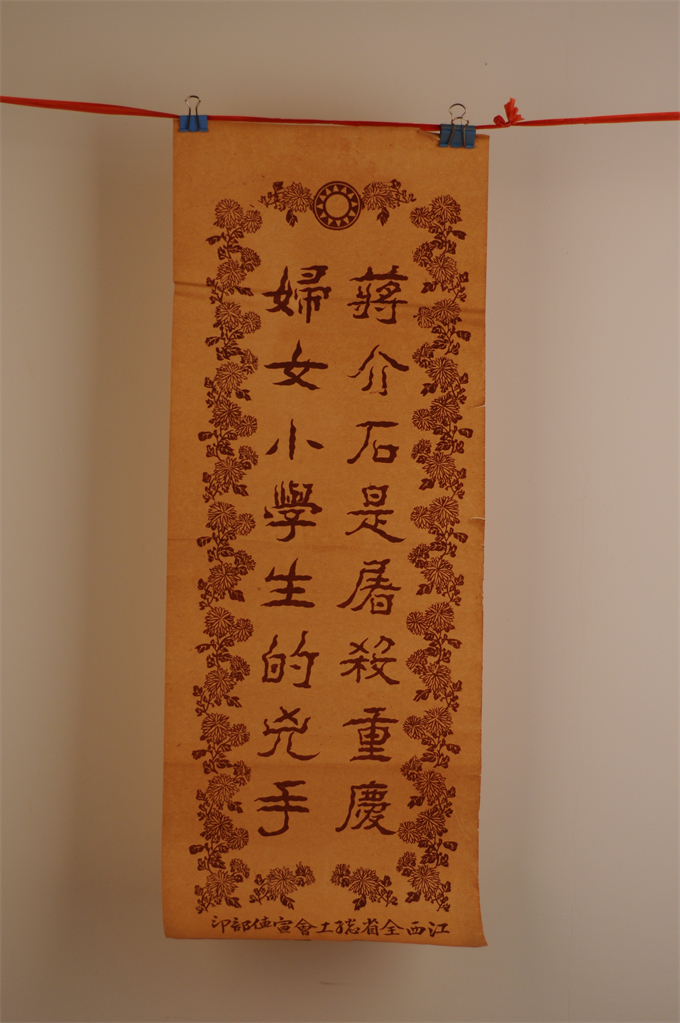 蔣介石是屠殺重慶
婦女小學生的兇手
江西全省總工會宣傳部印